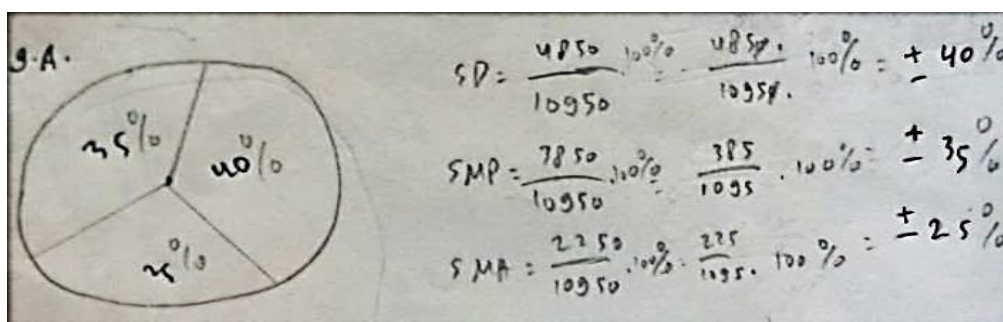 9.A.
35%
40%
25%
SD = 4850/10950 . 100% = 485∅./1095∅. 100% = ± 40%
SMP = 3850/10950 . 100% = 385/1095 . 100% = ± 35%
SMA = 2250/10950 . 100% = 225/1095 . 100% = ± 25%